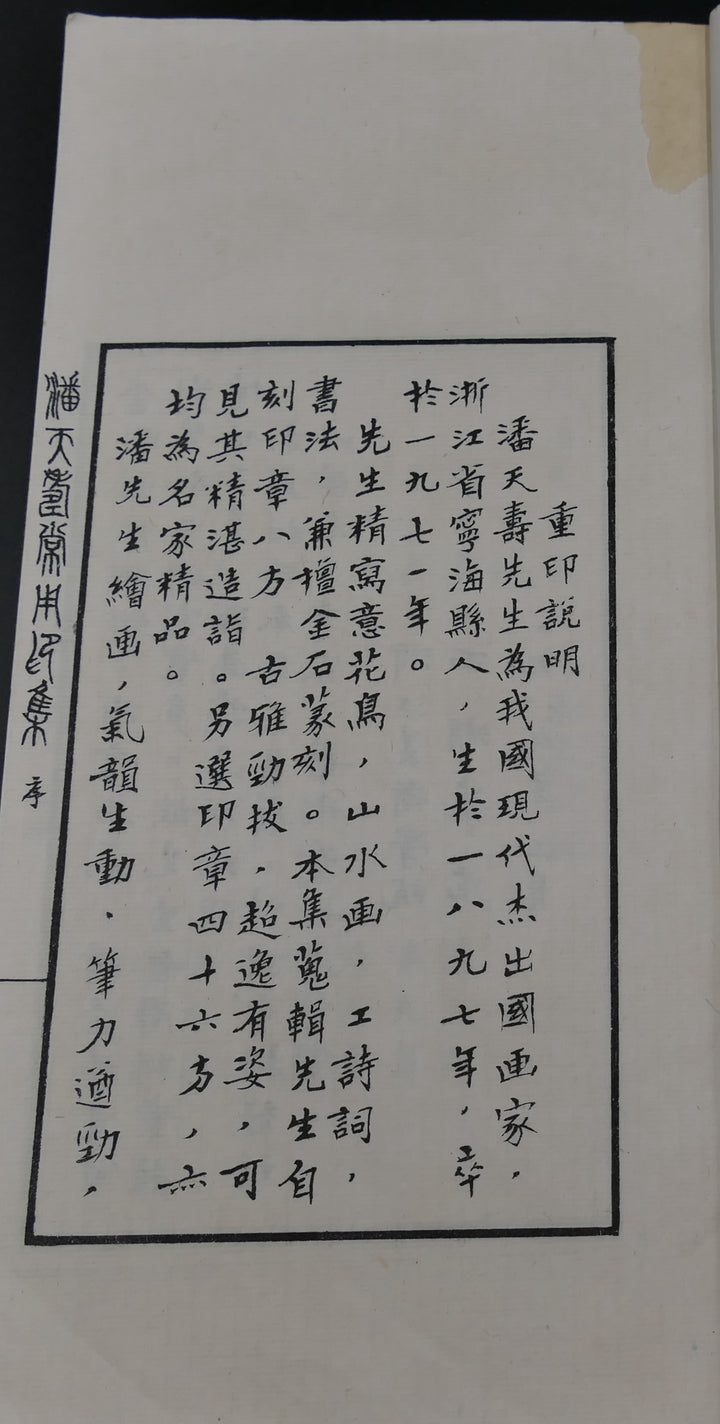 重印説明
潘天壽先生為我國現代杰出國画家，
浙江省寧海縣人，生於一八九七年，卒
於一九七一年。
先生精寫意花鳥，山水画，工詩詞，
書法，兼擅金石篆刻。本集蒐輯先生自
刻印章八方 古雅勁拔，超逸有姿，可
見其精湛造詣。另選印章四十六方，亦
均為名家精品。
潘先生繪画，氣韻生動、筆力遒勁，
潘天壽常用印集 序